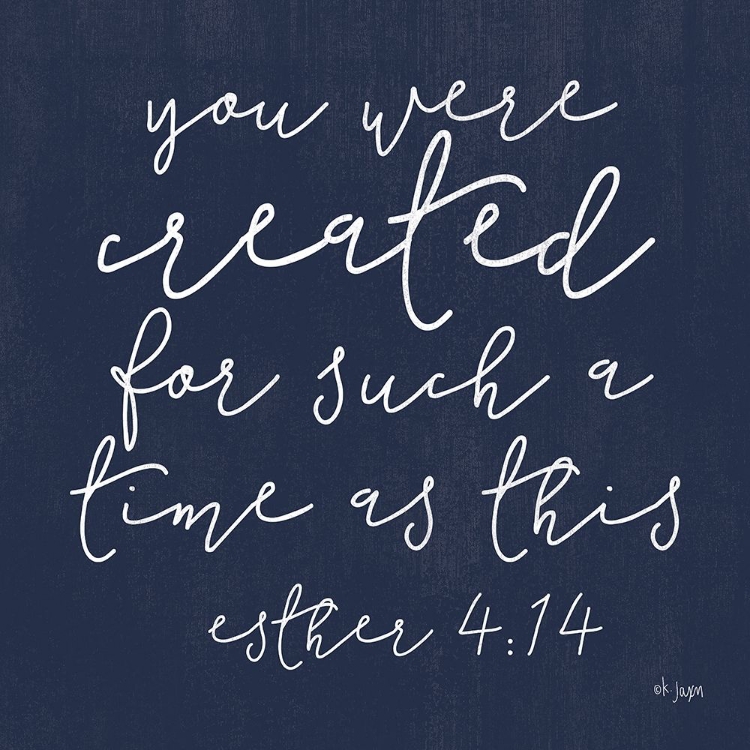 you were
created
for such a
time as this
esther 4:14
©K. Jaxn